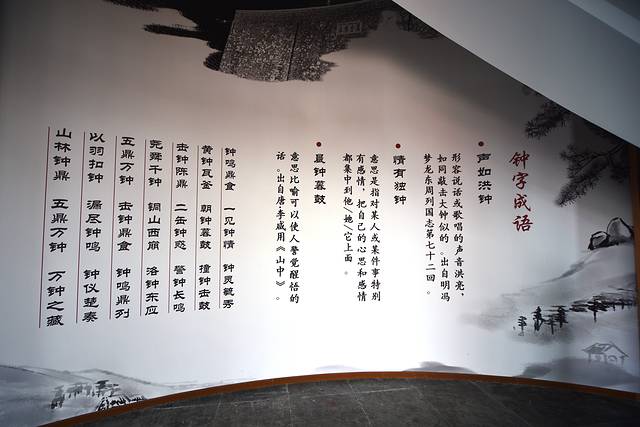 钟字成语
声如洪钟
形容说话或歌唱的声音洪亮，
如同敲击大钟似的。出自明冯
梦龙东周列国志第七十二回。
情有独钟
意思是指对某人或某件事特别
有感情，把自己的心思和感情
都集中到他/她/它上面。
晨钟暮鼓
意思比喻可以使人警觉醒悟的
话。出自唐·李咸用《山中》。
钟鸣鼎食 一见钟情 钟灵毓秀
黄钟瓦釜 朝钟暮鼓 撞钟击鼓
击钟陈鼎 二缶钟惑 警钟长鸣
尧舜千钟 铜山西崩 洛钟东应
五鼎万钟 击钟鼎食 钟鸣鼎列
以羽扣钟 漏尽钟鸣 钟仪楚奏
山林钟鼎 五鼎万钟 万钟之藏